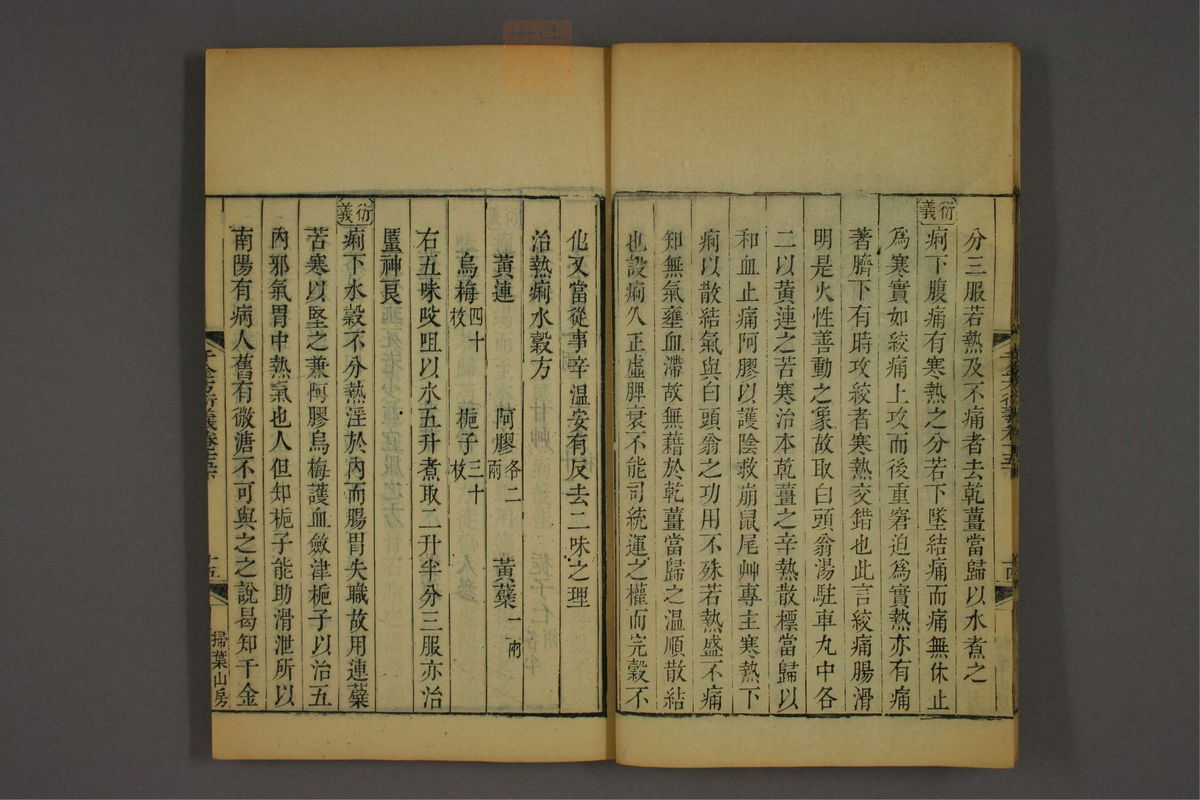 分三服若熱及不痛者去乾薑當歸以水煮之
衍義
痢下腹痛有寒熱之分若下墜結痛而痛無休止
爲寒實如絞痛上攻而後重窘迫爲實熱亦有痛
著臍下有時攻絞者寒熱交錯也此言絞痛腸滑
明是火性善動之象故取白頭翁湯駐車丸中各
二以黃連之苦寒治本乾薑之辛熱散標當歸以
和血止痛阿膠以護陰救崩鼠尾艸專主寒熱下
痢以散結氣與白頭翁之功用不殊若熱盛不痛
知無氣壅血滯故無藉於乾薑當歸之溫順散結
也設痢久正虛脾衰不能司統運之權而完穀不
化又當從事辛溫安有反去二味之理
治熱痢水穀方
黃連 阿膠各二兩 黃蘗一兩
烏梅四十枚 梔子三十枚
右五味㕮咀以水五升煮取二升半分三服亦治
䘌神良
衍義
痢下水穀不分熱淫於內而腸胃失職故用連蘗
苦寒以堅之兼阿膠烏梅護血斂津梔子以治五
內邪氣胃中熱氣也人但知梔子能助滑泄所以
南陽有病人舊有微溏不可與之之說曷知千金
千金方衍義卷十五
十五
掃葉山房